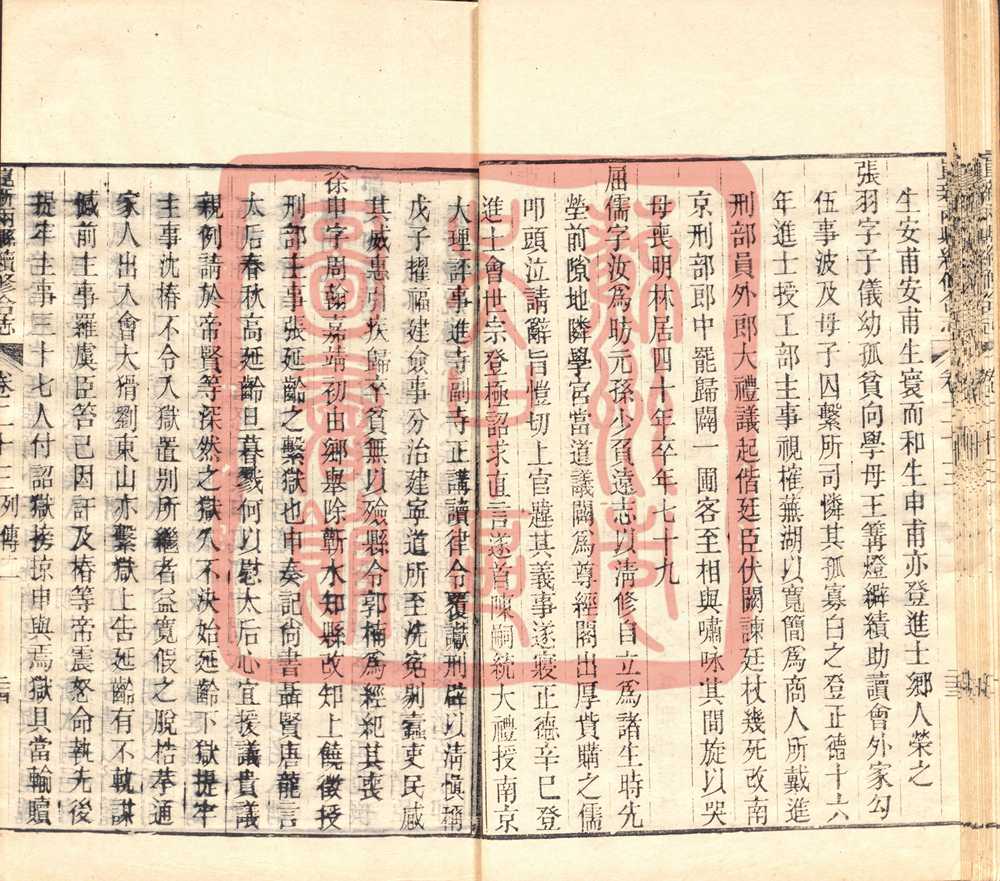 生安甫安甫生寰而和生申甫亦登進士鄉人榮之
張羽字子儀幼孤貧向學母王篝燈緝績助讀會外家勾
伍事波及母子囚繫所司憐其孤寡白之登正德十六
年進士授工部主事視榷蕪湖以寬簡為商人所戴進
刑部員外郎大禮議起偕廷臣伏闕諫廷杖幾死改南
京刑部郎中罷歸闢一圃客至相與嘯咏其間旋以哭
母喪明林居四十年卒年七十九
屈儒字汝為昉元孫少負遠志以清修自立為諸生時先
塋前隙地隣學宮當道議闢為尊經閣出厚貲購之儒
叩頭泣請辭旨愷切上官韙其義事遂寢正德辛巳登
進士會世宗登極詔求直言遂首陳嗣統大禮授南京
大理評事進寺副寺正講讀律令覆讞刑辟以清慎稱
戊子擢福建僉事分治建寧道所至洗冤剔蠹吏民感
其威惠引疾歸卒貧無以殮縣令郭楠為經紀其喪
徐申字周翰嘉靖初由鄉舉除蘄水知縣改知上饒徵授
刑部主事張延齡之繫獄也申奏記尚書聶賢唐龍言
太后春秋高延齡旦暮戮何以慰太后心宜援議貴議
親例請於帝賢等深然之獄久不決始延齡下獄提牢
主事沈椿不令入獄置別所繼者益寬假之脫梏拲通
家人出入會大猾劉東山亦繫獄上告延齡有不軌謀
憾前主事羅虞臣笞已因訐及椿等帝震怒命執先後
提牢主事三十七人付詔獄搒掠申與焉獄具當輸贖
崑新兩縣續修合志 卷二十三 列傳二